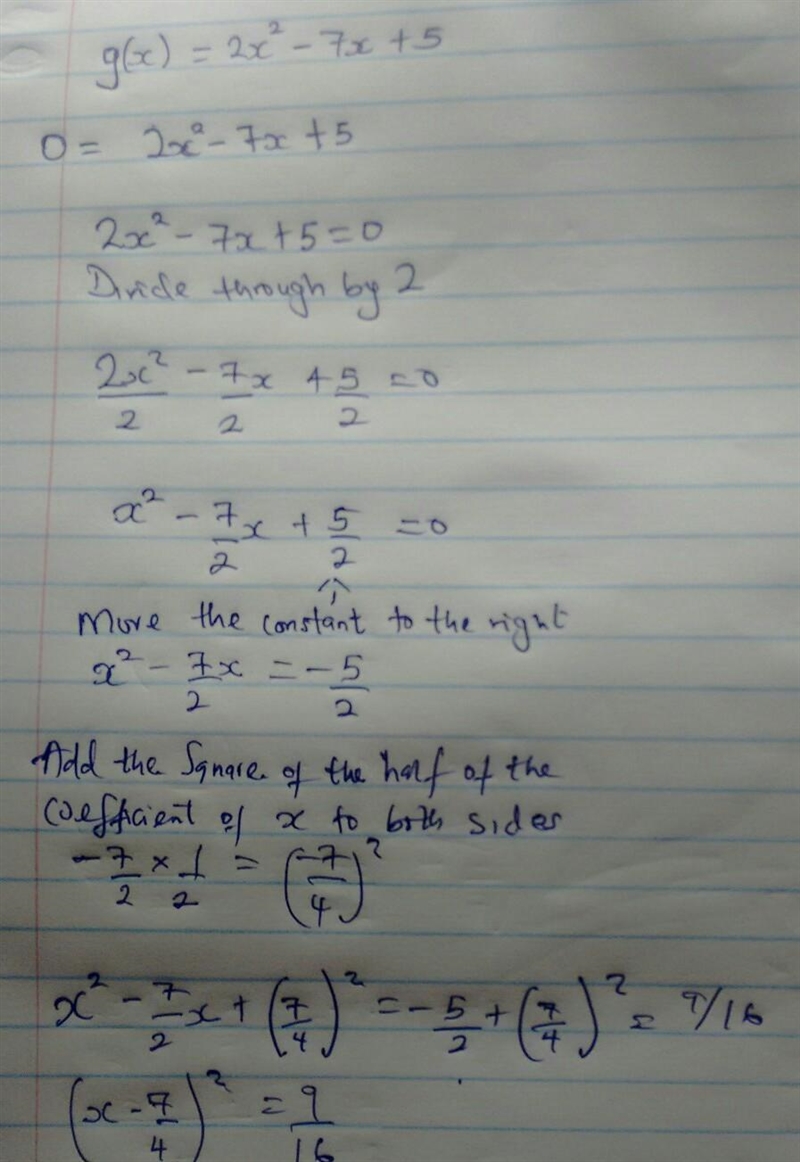 g(x) = 2x² - 7x + 5
0 = 2x² - 7x + 5
2x² - 7x + 5 = 0
Divide through by 2
2x²/2 - 7/2 x + 5/2 = 0
x² - 7/2 x + 5/2 = 0
Move the constant to the right
x² - 7x/2 = -5/2
Add the Square of the half of the
coefficient of x to both sides
-7/2 × 1/2 = (-7/4)²
x² - 7/2 x + (7/4)² = -5/2 + (7/4)² = 9/16
(x - 7/4)² = 9/16